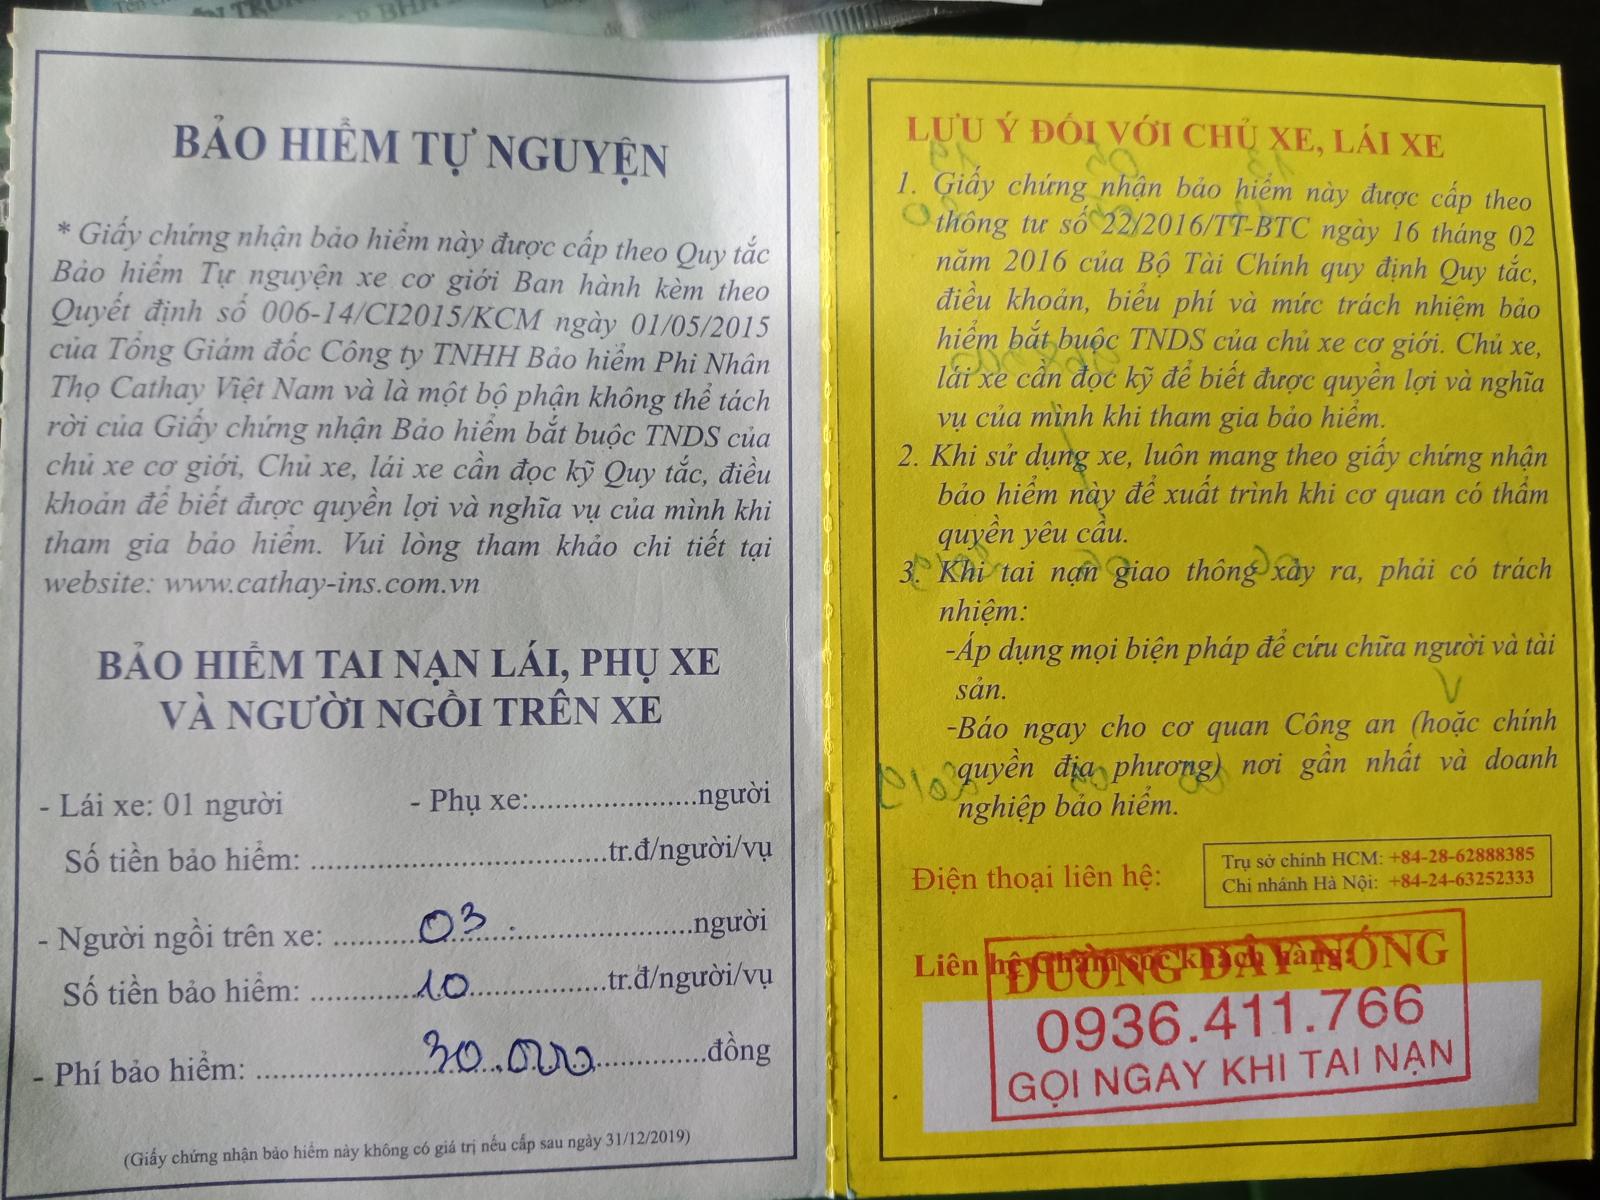 BẢO HIỂM TỰ NGUYỆN
* Giấy chứng nhận bảo hiểm này được cấp theo Quy tắc
Bảo hiểm Tự nguyện xe cơ giới Ban hành kèm theo
Quyết định số 006-14/CI2015/KCM ngày 01/05/2015
của Tổng Giám đốc Công ty TNHH Bảo hiểm Phi Nhân
Thọ Cathay Việt Nam và là một bộ phận không thể tách
rời của Giấy chứng nhận Bảo hiểm bắt buộc TNDS của
chủ xe cơ giới, Chủ xe, lái xe cần đọc kỹ Quy tắc, điều
khoản để biết được quyền lợi và nghĩa vụ của mình khi
tham gia bảo hiểm. Vui lòng tham khảo chi tiết tại
website: www.cathay-ins.com.vn
BẢO HIỂM TAI NẠN LÁI, PHỤ XE
VÀ NGƯỜI NGỒI TRÊN XE
- Lái xe: 01 người - Phụ xe:......................người
Số tiền bảo hiểm: ........................................tr.đ/người/vụ
- Người ngồi trên xe: ...........03...........................người
Số tiền bảo hiểm: ..............10..................tr.đ/người/vụ
- Phí bảo hiểm: ......................30.000...............đồng
(Giấy chứng nhận bảo hiểm này không có giá trị nếu cấp sau ngày 31/12/2019)
LƯU Ý ĐỐI VỚI CHỦ XE, LÁI XE
1. Giấy chứng nhận bảo hiểm này được cấp theo
thông tư số 22/2016/TT-BTC ngày 16 tháng 02
năm 2016 của Bộ Tài Chính quy định Quy tắc,
điều khoản, biểu phí và mức trách nhiệm bảo
hiểm bắt buộc TNDS của chủ xe cơ giới. Chủ xe,
lái xe cần đọc kỹ để biết được quyền lợi và nghĩa
vụ của mình khi tham gia bảo hiểm.
2. Khi sử dụng xe, luôn mang theo giấy chứng nhận
bảo hiểm này để xuất trình khi cơ quan có thẩm
quyền yêu cầu.
3. Khi tai nạn giao thông xảy ra, phải có trách
nhiệm:
-Áp dụng mọi biện pháp để cứu chữa người và tài
sản.
-Báo ngay cho cơ quan Công an (hoặc chính
quyền địa phương) nơi gần nhất và doanh
nghiệp bảo hiểm.
Điện thoại liên hệ:
Trụ sở chính HCM: +84-28-62888385
Chi nhánh Hà Nội: +84-24-63252333
Liên hệ Chăm sóc khách hàng:
ĐƯỜNG DÂY NÓNG
0936.411.766
GỌI NGAY KHI TAI NẠN